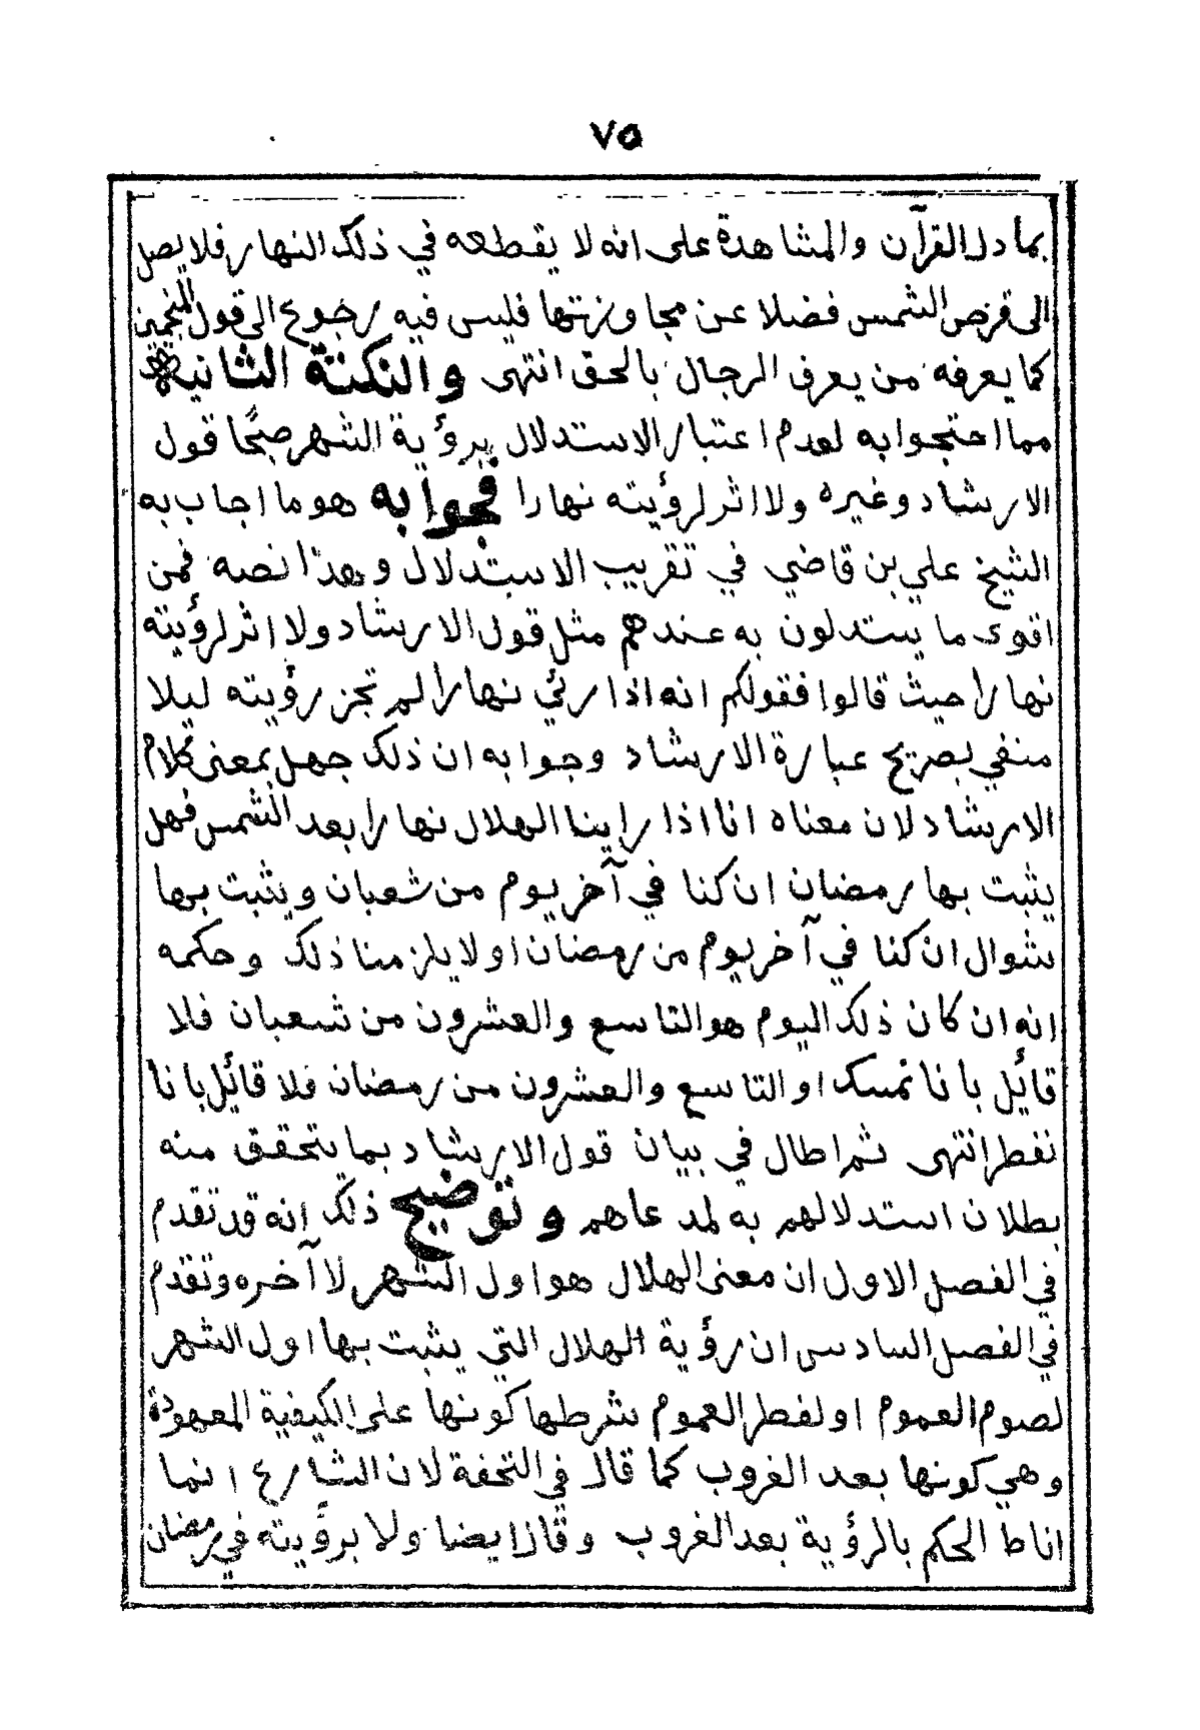 ٧٥
بما دل القرآن والمشاهدة على انه لا يقطعه في ذلك النهار فلا يصل
الى قرص الشمس فضلا عن مجاوزتها فليس فيه رجوع الى قول المنجمين
كما يعرفه من يعرف الرجال بالحق انتهى والنكتة الثانية
مما احتجوا به لعدم اعتبار الاستدلال برؤية الشهر صبحًا قول
الارشاد وغيره ولا اثر لرؤيته نهارا فجوابه هو ما اجاب به
الشيخ علي بن قاضي في تقريب الاستدلال وهذا نصه فمن
اقوى ما يستدلون به عندهم مثل قول الارشاد ولا اثر لرؤيته
نهارا حيث قالوا فقولكم انه اذا رئي نهارا لم تجز رؤيته ليلا
منفي بصريح عبارة الارشاد وجوابه ان ذلك جهل بمعنى كلام
الارشاد لان معناه انا اذا راينا الهلال نهارا بعد الشمس فهل
يثبت بها رمضان ان كنا في آخر يوم من شعبان ويثبت بها
شوال ان كنا في آخر يوم من رمضان او لا يلزمنا ذلك وحكمه
انه ان كان ذلك اليوم هو التاسع والعشرون من شعبان فلا
قائل بانا نمسك او التاسع والعشرون من رمضان فلا قائل بانا
نفطر انتهى ثم اطال في بيان قول الارشاد بما يتحقق منه
بطلان استدلالهم به لمدعاهم وتوضيح ذلك انه قد تقدم
في الفصل الاول ان معنى الهلال هو اول الشهر لا آخره وتقدم
في الفصل السادس ان رؤية الهلال التي يثبت بها اول الشهر
لصوم العموم او لفطر العموم شرطها كونها على الكيفية المعهودة
وهي كونها بعد الغروب كما قال في التحفة لان الشارع انما
اناط الحكم بالرؤية بعد الغروب وقال ايضا ولا برؤيته في رمضان